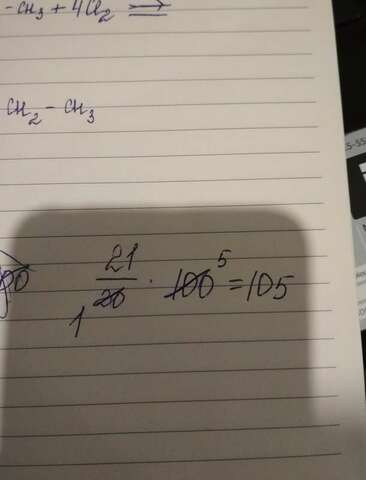 -CH₃ + 4Cl₂ ⟹
CH₂ - CH₃
21/20 · 100 5 = 105
1